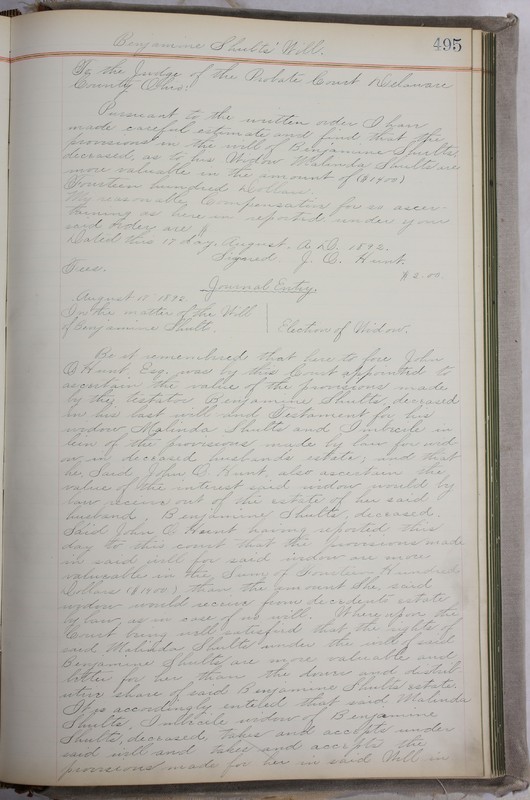 Benjamine Shults' Will.
495
To the Judge of the Probate Court Delaware
County Ohio:
Pursuant to the written order I have
made careful estimate and find that the
provisions in the will of Benjamine Shults,
deceased, as to his Widow Malinda Shults are
more valuable in the amount of ($1400)
Fourteen hundred Dollars.
My reasonable compensation for so ascer-
taining as here in reported under your
said order are $
Dated this 17 day, August, A.D. 1892.
Signed J. O. Hunt.
Fees. $2.00
Journal Entry.
August 18 1892
In the matter of the Will
of Benjamine Shult.
Election of Widow.
Be it remembered that here to fore John
O Hunt, Esq. was by this Court appointed to
ascertain the value of the provisions made
by the testator Benjamine Shults, deceased
in his last will and Testament for his
widow Malinda Shults and Imbecile in
lieu of the provisions made by law for wid
ow, in deceased husbands estate; and that
he, Said John O. Hunt, also ascertain the
value of the interest said widow would by
law receive out of the estate of her said
husband Benjamine Shults, deceased.
Said John O Hunt having reported this
day to this court that the provisions made
in said will for said widow are more
valuable in the Sum of Fourteen Hundred
Dollars ($1400) than the amount she, said
widow would receive from decedents estate
by law as in case of no will. Where upon the
Court being well satisfied that the rights of
said Malinda Shults under the will of said
Benjamine Shults are more valuable and
better for her than the dower and distrib
utive share of said Benjamine Shults estate.
It is accordingly entered that said Malinda
Shults, Imbecile widow of Benjamine
Shults, deceased, takes and accepts under
said will and takes and accepts the
provisions made for her in said Will in